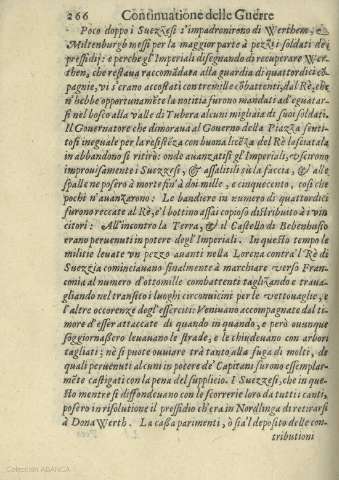 266 Continuatione delle Guerre
Poco doppo i Suezzesi s'impadronireno di Werthem, e
Miltenburgh messi per la maggior parte à pezzi i soldati de i
pressidij: e perche gl'Imperiali disegnando di recuperare Wer-
them, che restaua raccomādata alla guardia di quattordici cō-
pagnie, vi s'erano accostati con tremille cōbattenti, dal Rè, che
n'hebbe opportunamēte la notitia furono mandati ad eguatar-
si nel bosco alla valle di Tubera alcuni migliaia di suoi soldati.
Il Gouernatore che dimoraua al Gouerno della Piazza senti-
tosi ineguale per la resistēza con buona licēza del Rè lasciatala
in abbandono si ritirò: onde auanzatisi gl'Imperiali, vscirono
improuisamente i Suezzesi, & assalitili sù la faccia, & alle
spalle ne posero à morte fin'à doi mille, e cinquecento, così che
pochi n'auanzarono: Le bandiere in numero di quattordici
furono reccate al Rè, e'l bottino assai copioso distributo à i vin
citori: All'incontro la Terra, & il Castello di Bebenhusio
erano peruenuti in potere degl'Imperiali. In questo tempo le
militie leuate vn pezzo auanti nella Lorena contra'l Rè di
Suezzia cominciauano finalmente à marchiare verso Fran-
conia al numero d'ottomille combattenti taglizando e traua-
gliando nel transito i luoghi circonuicini per le vettouaglie, e
l'altre occorenze degl'esserciti: Veniuano accompagnate dal ti-
more d'esser attaccate di quando in quando, e però ouunque
soggiornassero leuauano le strade, e le chiudeuano con arbori
tagliati; nè si puote ouuiare trà tanto alla fuga di molti, de
quali peruenuti alcuni in potere de' Capitani furono essemplar-
mēte castigati con la pena del supplicio. I Suezzesi, che in que-
sto mentre si diffondeuano con le scorrerie loro da tutti i canti,
posero in risolutione il pressidio ch'era in Nordlinga di retirarsi
à Dona Werth. La cassa parimenti, ò sia'l deposito delle con-
tributioni
Colección ABANCA